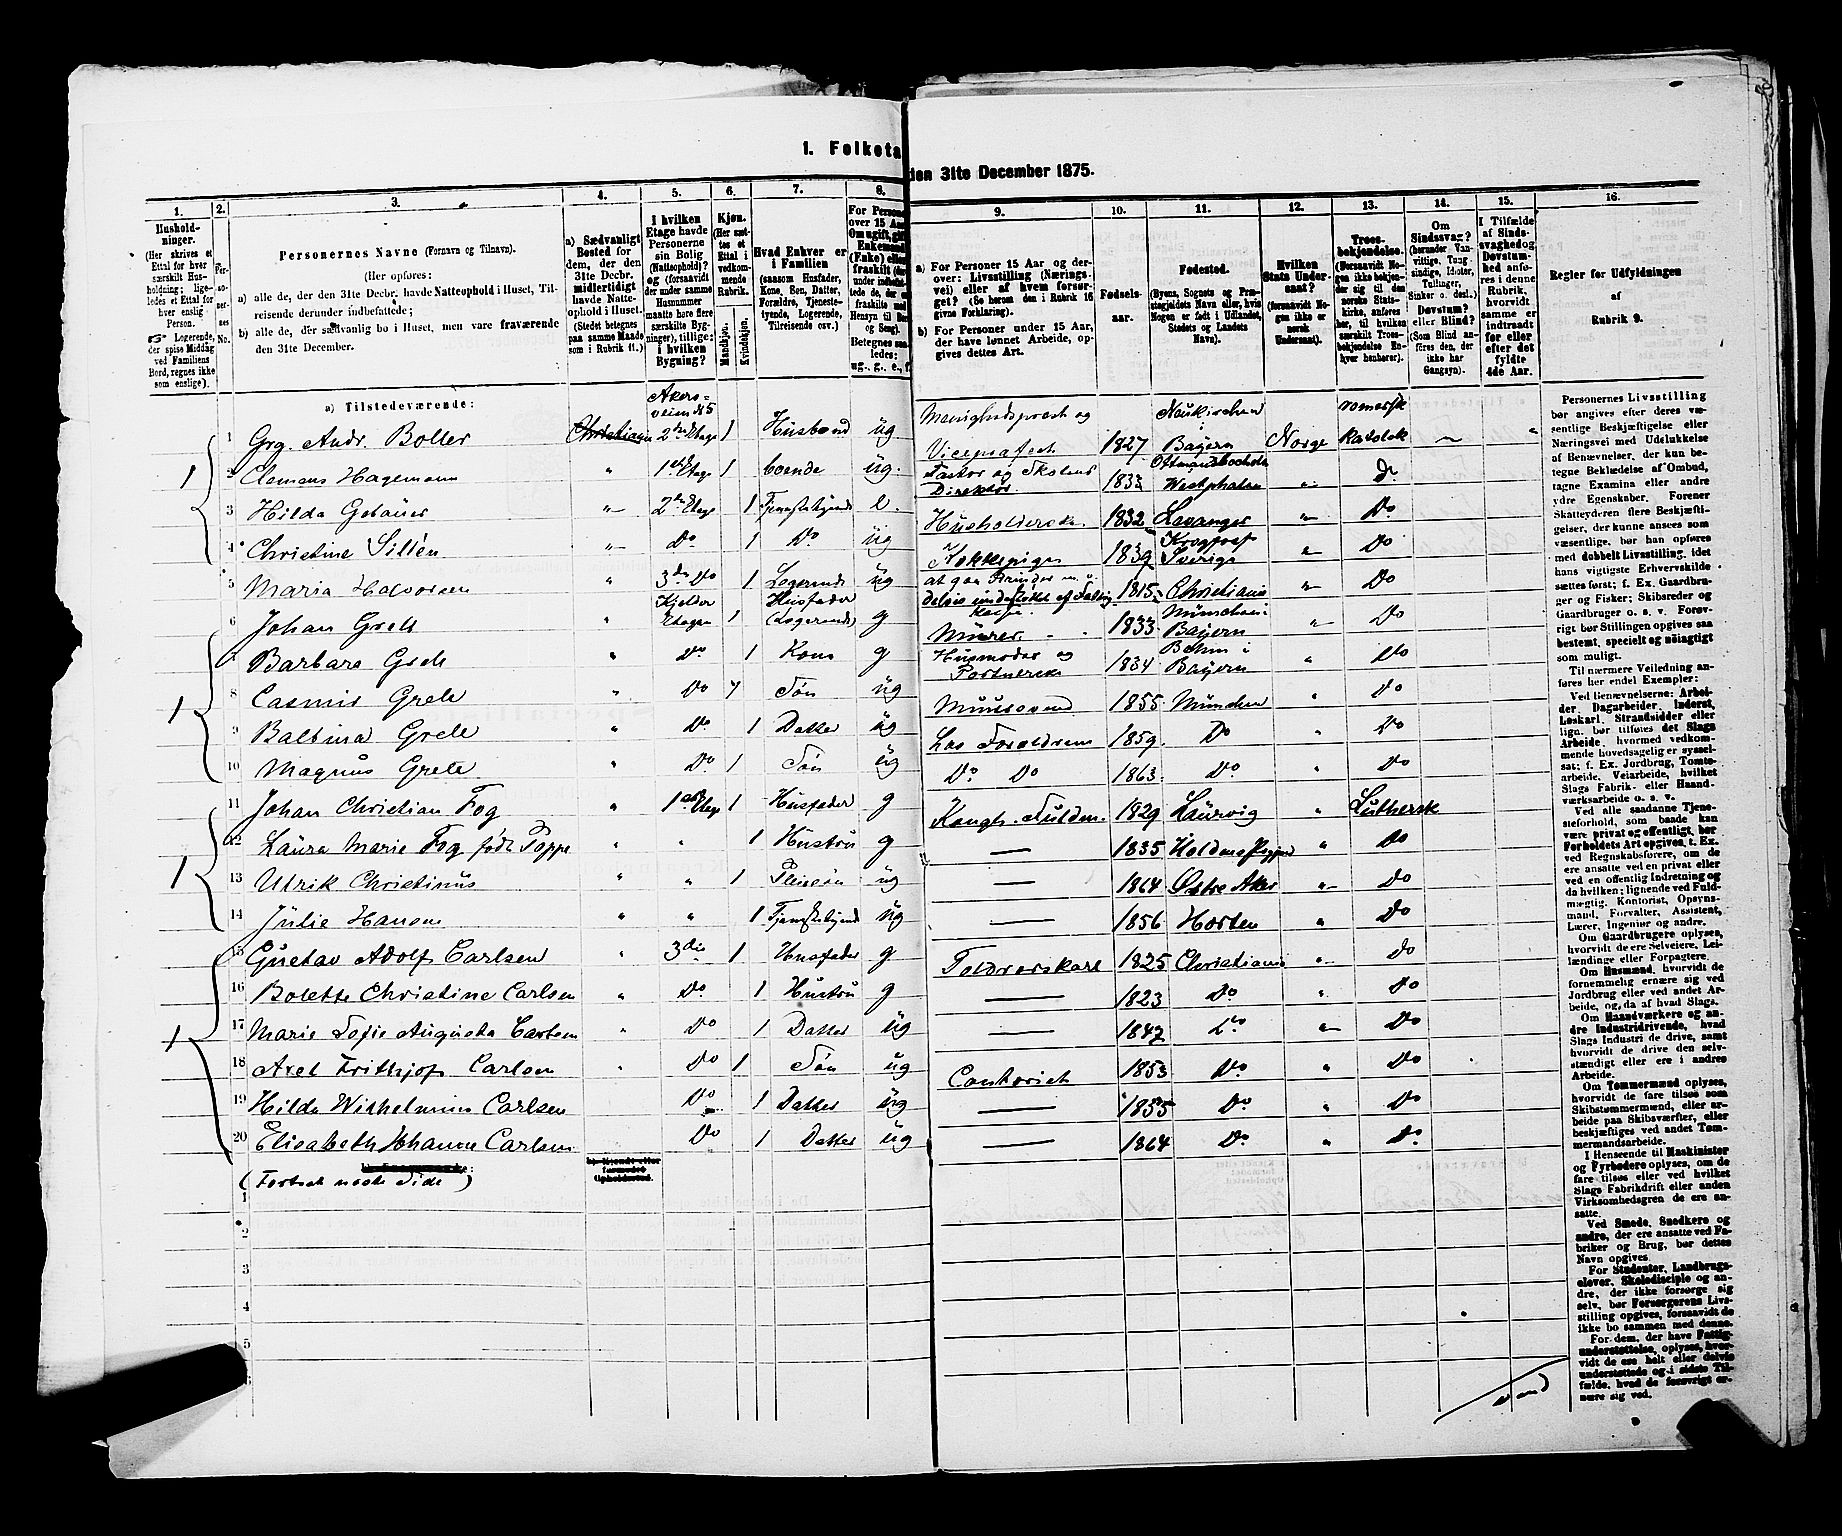 1. Folketa
den 31te December 1875.
1.
2.
3.
4.
5.
6.
7.
8.
9.
10.
11.
12.
13.
14.
15.
16.
Hushold-
ninger.
(Her skrives et
Ettal for hver
særskilt Hus-
holdning; lige-
ledes et Ettal for
hver enslig
Person.
Logerende,
der spise Middag
ved Familiens
Bord, regnes ikke
som enslige).
Per-
so-
ner-
nes
No.
Personernes Navne (Fornavn og Tilnavn).
(Her opføres:
a) alle de, der den 31te Decbr. havde Natteophold i Huset, Til-
reisende derunder indbefattede;
b) alle de, der sædvanlig bo i Huset, men vare fraværende
den 31te December.
a) Sædvanligt
Bosted for
dem, der den
31te Decbr.
midlertidigt
havde Natte-
ophold i Huset.
(Stedet betegnes
paa samme Maade
som i Rubrik 11.)
I hvilken
Etage havde
Personerne
sin Bolig
(Natteophold)?
og (forsaavidt
der under samme
Husnummer
maatte høre flere
særskilte Byg-
ninger), tillige:
i hvilken
Bygning?
Kjøn.
(Her sæt-
tes et
Ettal i
vedkom-
mende
Rubrik.
Mandkjøn.
Kvindekjøn.
Hvad Enhver er
i Familien
(saasom Husfader,
Kone, Søn, Datter,
Forældre, Tjeneste-
tyende, Logerende,
Tilreisende osv.)
For Person
over 15 Aa
Om ugift, gif
Enkemand
(Enke) eller
fraskilt (der
under indbefat-
tede de, der e
fraskilte med
Hensyn til Bor
og Seng).
Betegnes saa-
ledes:
ug., g., e., f.
a) For Personer 15 Aar og der-
over: Livsstilling (Nærings-
vei) eller af hvem forsør-
get? (Se herom den i Rubrik 16
givne Forklaring).
b) For Personer under 15 Aar,
der have lønnet Arbeide, op-
gives dettes Art.
Fødsels-
aar.
Fødested.
(Byens, Sognets og Præ-
stegjeldets Navn eller, hvis
Nogen er født i Udlandet,
Stedets og Landets
Navn).
Hvilken
Stats Under-
saat?
(forsaavidt No-
gen ikke er
norsk
Undersaat).
Troes-
bekjendelse.
(Forsaavidt No-
gen ikke bekjen-
der sig til den
norske Stats-
kirke, anføres
her, til hvilken
særskilt Troes-
bekjendelse En-
hver henhører).
Om
Sindssvag?
(herunder Van-
vittige, Tung-
sindige, Idioter,
Tullinger,
Sinker o. desl.)
Døvstum?
eller Blind?
(Som Blind an-
føres den, der
ikke har
Gangsyn).
I Tilfælde
af Sinds-
svaghed og
Døvstum-
hed anfø-
res i denne
Rubrik,
hvorvidt
samme er
indtraadt
før eller
efter det
fyldte
4de Aar.
Regler for Udfyldningen
af
Rubrik 9.
a) Tilstedeværende:
1 1 Grg. Andr. Boller Christiania Akersveien № 5 2den Etage 1 Husbond ug Menighedspræst og Vicepræfect 1827 Neukirchen Bayern Norge romersk Katolsk
2 Clemens Hagemann " 1ste Etage 1 boende ug. Pastor og Skolens Direktør 1833 Westphalen " do
3 Hilda Gebauer " 2den Etage 1 Tjenestetyende e. Husholderske 1832 Levanger " Do
4 Christine Sillén " Do 1 Do ug Kokkepige 1839 Sverige " Do
5 Maria Halvorsen " 3de Do 1 Logerende ug 1815 Christiania " Do
1 6 Johan Grele " Kjelder Etagen 1 Husfader (Logerende) g Murer 1833 München i Bayern " Do
7 Barbara Grele " Do 1 Kone g Husmoder og Portnerske 1834 Bayern " Do
8 Casmir Grele " Do 1 Søn ug Muursvend 1855 München " Do
9 Balbina Grele " Do 1 Datter ug Hos Forældrene 1859 Do " Do
10 Magnus Grele " Do 1 Søn ug Do Do 1863 Do " Do
1 11 Johan Christian Fog " 1ste Etage 1 Husfader g Kongl. Fuldm. 1829 Laurvig " Luthersk
12 Laura Marie Fog født Poppe " " 1 Hustru g — 1835 " Do
13 Ulrik Christinus " " 1 Pleiesøn ug — 1864 Østre Aker " Do
14 Julie Hansen " " 1 Tjenestetyende ug — 1856 Horten " Do
1 15 Gustav Adolf Carlsen " 3die 1 Husfader g Toldrorskarl 1825 Christiania " Do
16 Bolette Christine Carlsen " Do 1 Hustru g — 1823 Do " Do
17 Marie Sofie Augusta Carlsen " Do 1 Datter ug — 1847 Do " Do
18 Axel Frithjof Carlsen " Do 1 Søn ug Contorist 1853 Do " Do
19 Hilda Wilhelmine Carlsen Do 1 Datter ug — 1855 Do " Do
20 Elisabeth Johanne Carlsen Do 1 Datter ug — 1864 Do " Do
b) Fraværende:
b) Kjendt eller
formodet
Opholdssted.
(Fortsat næste Side)
1
2
3
4
5
6
Personernes Livsstilling
bør angives efter deres væ-
sentlige Beskjæftigelse eller
Næringsvei med Udelukkelse
af Benævnelser, der kun be-
tegne Beklædelse af Ombud,
tagne Examina eller andre
ydre Egenskaber. Forener
Skatteyderen flere Beskjæfti-
gelser, der kunne ansees som
væsentlige, bør han opføres
med dobbelt Livsstilling, idet
hans vigtigste Erhvervskilde
sættes først; f. Ex. Gaardbru-
ger og Fisker; Skibsreder og
Gaardbruger o. s. v. Forøv-
rigt bør Stillingen opgives saa
bestemt, specielt og nøiagtigt
som muligt.
Til nærmere Veiledning an-
føres her endel Exempler:
Ved Benævnelserne: Arbei-
der, Dagarbeider, Inderst,
Løskarl, Strandsidder eller
lign. bør tilføres det Slags
Arbeide, hvormed vedkom-
mende hovedsagelig er syssel-
sat; f. Ex. Jordbrug, Tomte-
arbeide, Veiarbeide, hvilket
Slags Fabrik- eller Haand-
værksarbeide o. s. v.
Ved alle saadanne Tjene-
steforhold, som baade kan
være privat og offentligt, bør
Forholdets Art opgives, t. Ex.
ved Regnskabsførere, om de
ere ansatte ved en privat eller
ved en offentlig Indretning og
da hvilken; lignende ved Fuld-
mægtig, Kontorist, Opsyns-
mand, Forvalter, Assistent,
Lærer, Ingeniør og andre.
Om Gaardbrugere oplyses,
hvorvidt de ere Selveiere, Lei-
lændinge eller Forpagtere.
Om Husmænd, hvorvidt de
fornemmelig ernære sig ved
Jordbrug eller ved andet Ar-
beide, og da af hvad Slags.
Om Haandværkere og an-
dre Industridrivende, hvad
Slags Industri de drive, samt
hvorvidt de drive den selv-
stændigt eller ere i andres
Arbeide.
Om Tømmermænd oplyses,
hvorvidt de fare tilsøs som
Skibstømmermænd, eller ar-
beide paa Skibsværfter, eller
beskjæftiges ved andet Tøm-
mermandsarbeide.
I Henseende til Maskinister
og Fyrbødere oplyses, om de
fare tilsøs eller ved hvilket
Slags Fabrikdrift eller anden
Virksomhedsgren de ere an-
satte.
Ved Smede, Snedkere og
andre, der ere ansatte ved Fa-
briker og Brug, bør dettes
Navn opgives.
For Studenter, Landbrugs-
elever, Skoledisciple og an-
dre, der ikke forsørge sig
selv, bør Forsørgerens Livs-
stilling opgives, forsaavidt de
ikke bo sammen med denne.
For dem, der have Fattig-
understøttelse, oplyses, hvor-
vidt de ere helt eller delvis
understøttede og i sidste Til-
fælde, hvad de forøvrigt er-
nære sig ved.